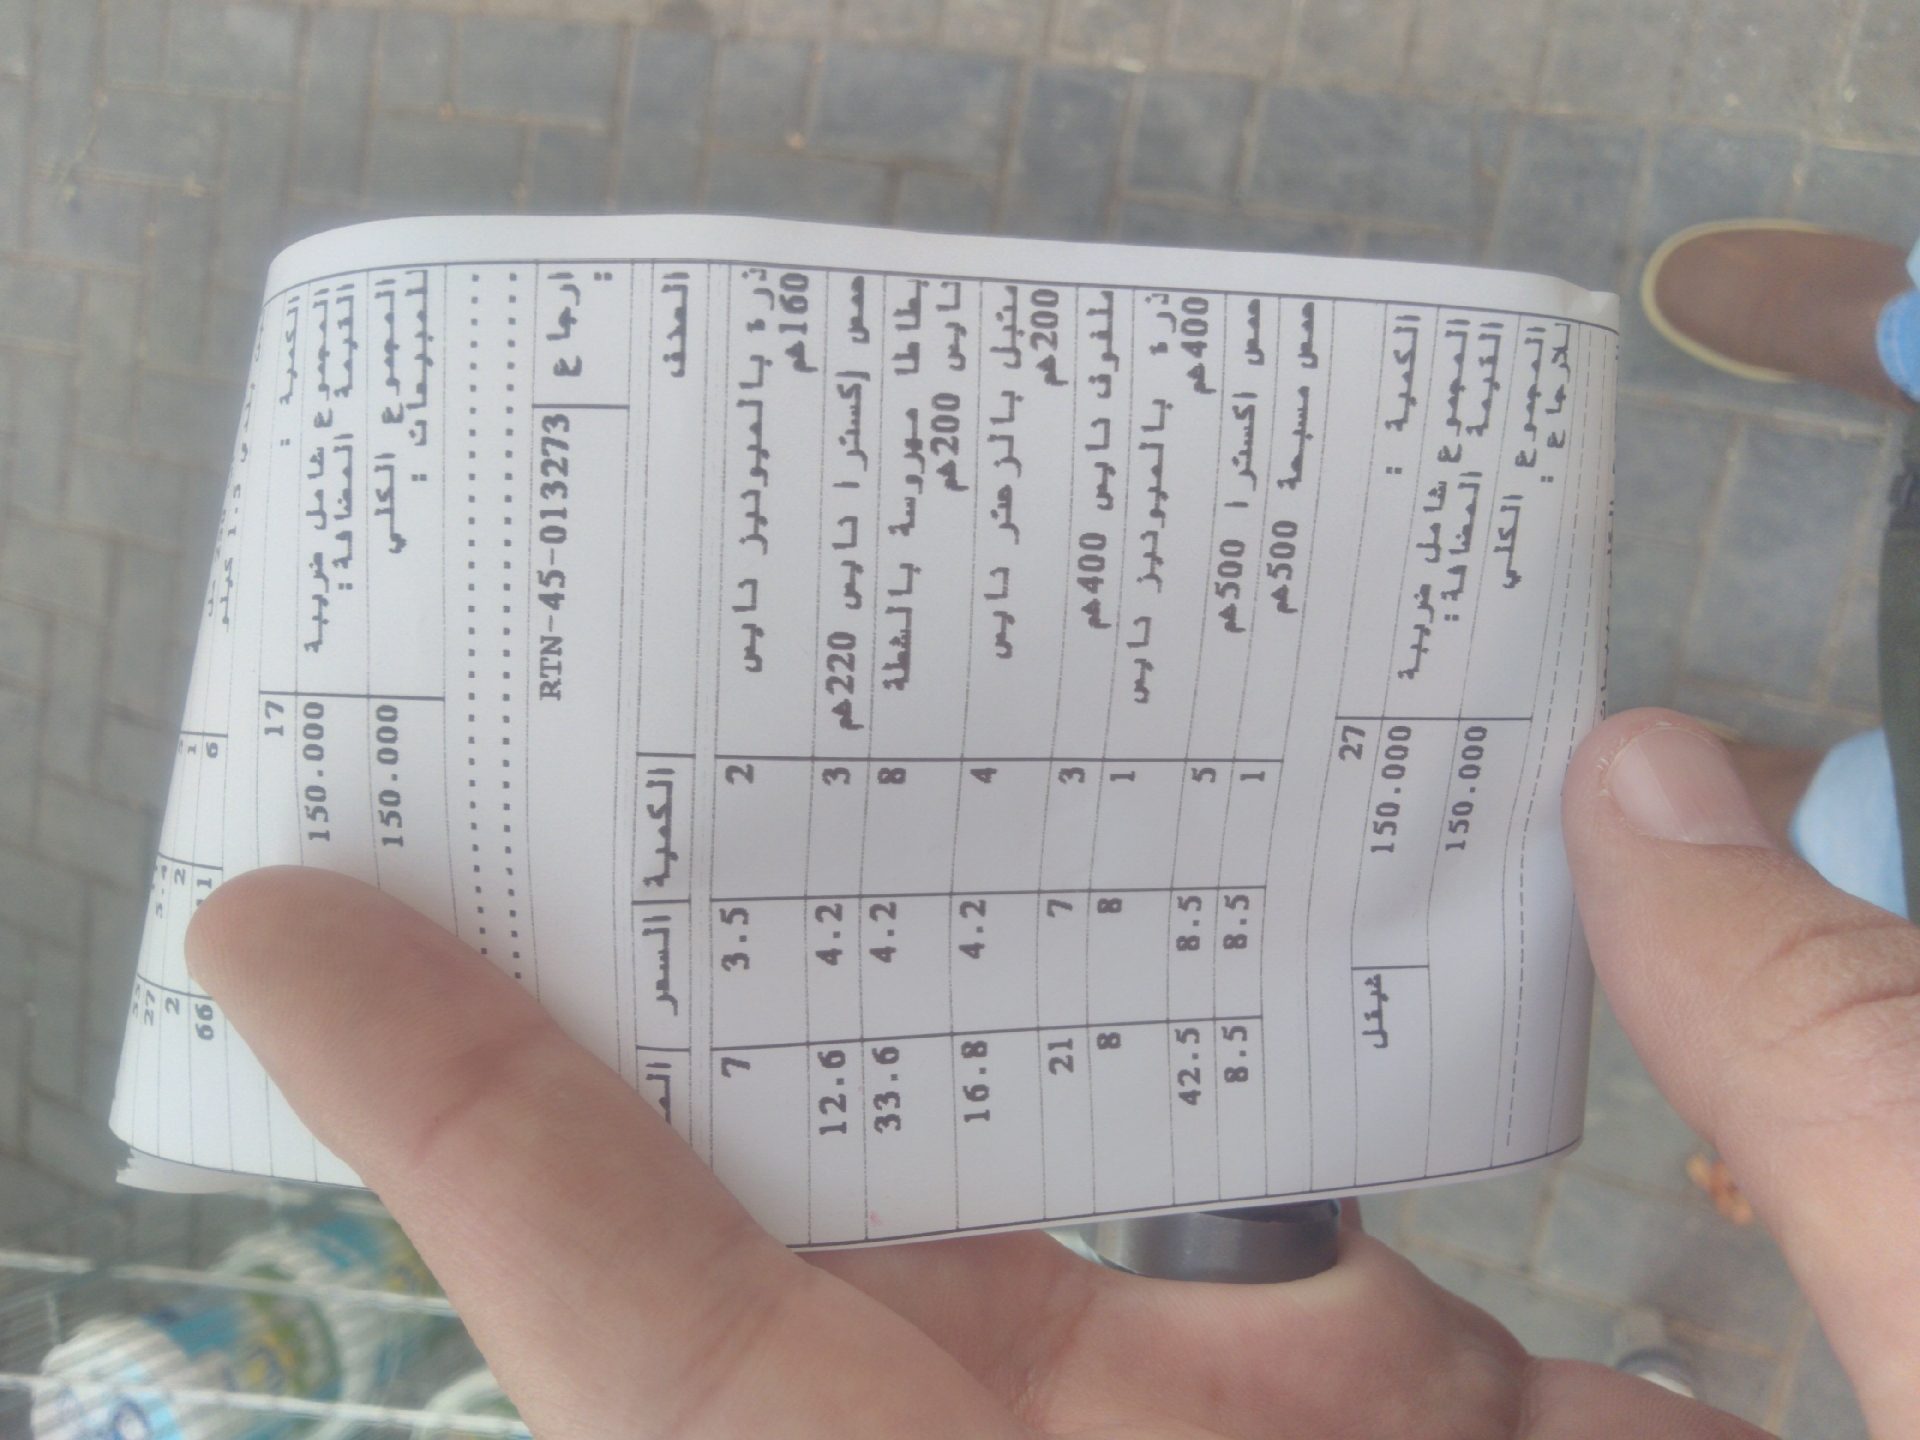 1 2
6 11 66
الكمية : 17
المجموع شامل ضريبة القيمة المضافة: 150.000
المجموع الكلي للمبيعات : 150.000
ارجاع : RTN-45-013273
الصنف الكمية السعر
ذرة بالميونيز نايس 160غم 2 3.5 7
حمص إكسترا نايس 220غم 3 4.2 12.6
بطاطا مهروسة بالشطة نايس 200غم 8 4.2 33.6
متبل بالزعتر نايس 200غم 4 4.2 16.8
ملفوف نايس 400غم 3 7 21
ذرة بالميونيز نايس 400غم 1 8 8
حمص اكسترا 500غم 5 8.5 42.5
حمص مسبحة 500غم 1 8.5 8.5
الكمية : 27
المجموع شامل ضريبة القيمة المضافة: 150.000 شيقل
المجموع الكلي للارجاع : 150.000